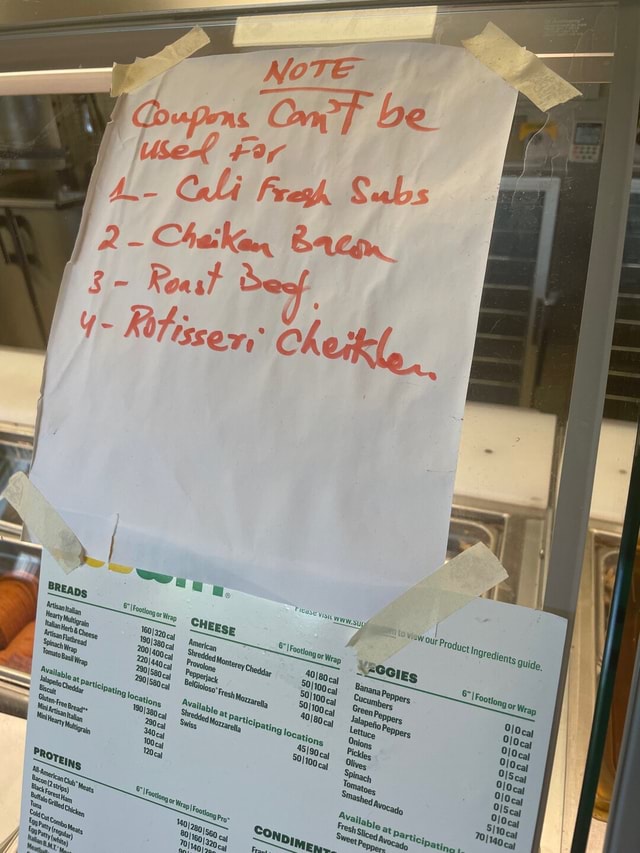 NOTE
Coupons Can't be
used For
1- Cali Fresh Subs
2- Cheiken Bacon
3- Roast Beef.
4- Rotisseri Cheikken
to view our Product Ingredients guide.
BREADS
6" | Footlong or Wrap
Artisan Italian 160|320 cal
Hearty Multigrain 190|380 cal
Italian Herb & Cheese 200|400 cal
Artisan Flatbread 220|440 cal
Spinach Wrap 290|580 cal
Tomato Basil Wrap 290|580 cal
Available at participating locations
Jalapeño Cheddar 190|380 cal
Biscuit 290 cal
Gluten-Free Bread** 340 cal
Mini Artisan Italian 100 cal
Mini Hearty Multigrain 120 cal
PROTEINS
6" | Footlong or Wrap | Footlong Pro™
All-American Club® Meats 140|280|560 cal
Bacon (2 strips) 80|160|320 cal
Black Forest Ham
Buffalo Grilled Chicken
Tuna
Cold Cut Combo Meats
Egg Patty (regular)
Egg Patty (white)
CHEESE
6" | Footlong or Wrap
American 40|80 cal
Shredded Monterey Cheddar 50|100 cal
Provolone 50|100 cal
Pepperjack 50|100 cal
BelGioioso® Fresh Mozzarella 40|80 cal
Available at participating locations
Shredded Mozzarella 45|90 cal
Swiss 50|100 cal
VEGGIES
6" | Footlong or Wrap
Banana Peppers 0|0 cal
Cucumbers 0|0 cal
Green Peppers 0|0 cal
Jalapeño Peppers 0|0 cal
Lettuce 0|5 cal
Onions 0|0 cal
Pickles 0|0 cal
Olives 0|5 cal
Spinach 0|0 cal
Tomatoes 5|10 cal
Smashed Avocado 70|140 cal
Available at participating
Fresh Sliced Avocado
Sweet Peppers